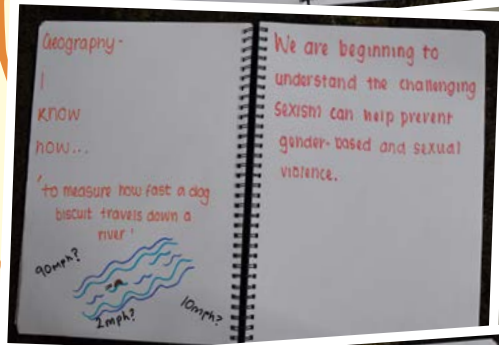 Geography-
I
know
how...
'to measure how fast a dog
biscuit travels down a
river'
90mph?
2mph?
10mph?
We are beginning to
understand the challenging
sexism can help prevent
gender-based and sexual
violence.